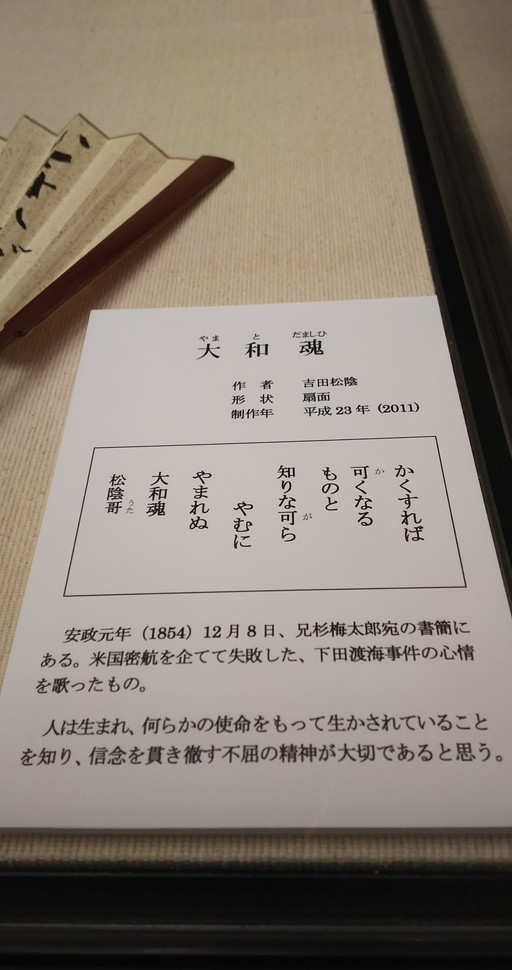 大和魂
やまとだましひ
作者 吉田松陰
形状 扇面
制作年 平成23年（2011）
かくすれば
可くなる
か
ものと
知りな可ら
が
やむに
やまれぬ
大和魂
松陰哥
うた
安政元年（1854）12月8日、兄杉梅太郎宛の書簡に
ある。米国密航を企てて失敗した、下田渡海事件の心情
を歌ったもの。
人は生まれ、何らかの使命をもって生かされていること
を知り、信念を貫き徹す不屈の精神が大切であると思う。